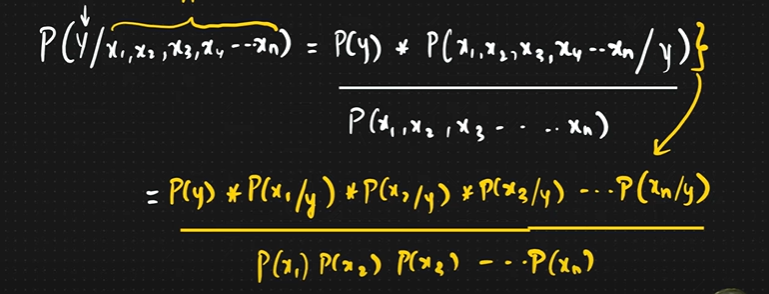 P(y/x₁,x₂,x₃,x₄---xₙ) = P(y) * P(x₁,x₂,x₃,x₄--xₙ/y)}
P(x₁,x₂,x₃-----xₙ)
= P(y) * P(x₁/y) * P(x₂/y) * P(x₃/y) ---P(xₙ/y)
P(x₁) P(x₂) P(x₃) ----P(xₙ)